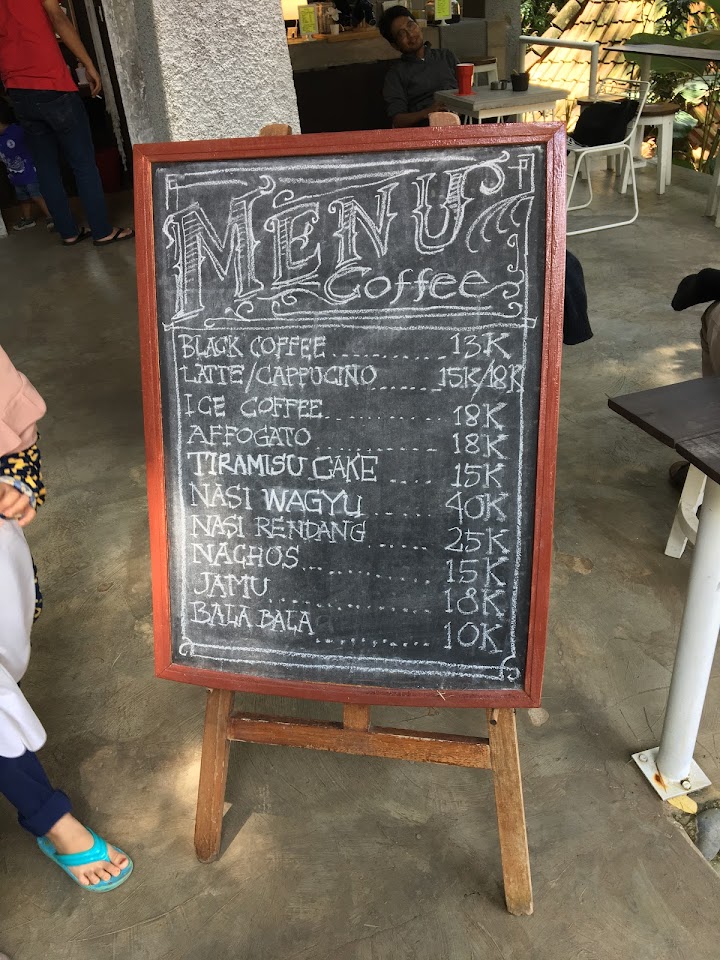 MENU
Coffee
BLACK COFFEE ............ 13K
LATTE/CAPPUCINO ...... 15K/18K
ICE COFFEE ............ 18K
AFFOGATO ............ 18K
TIRAMISU CAKE .... 15K
NASI WAGYU .... 40K
NASI RENDANG ...... 25K
NACHOS ............ 15K
JAMU ............ 18K
BALA BALA ............ 10K